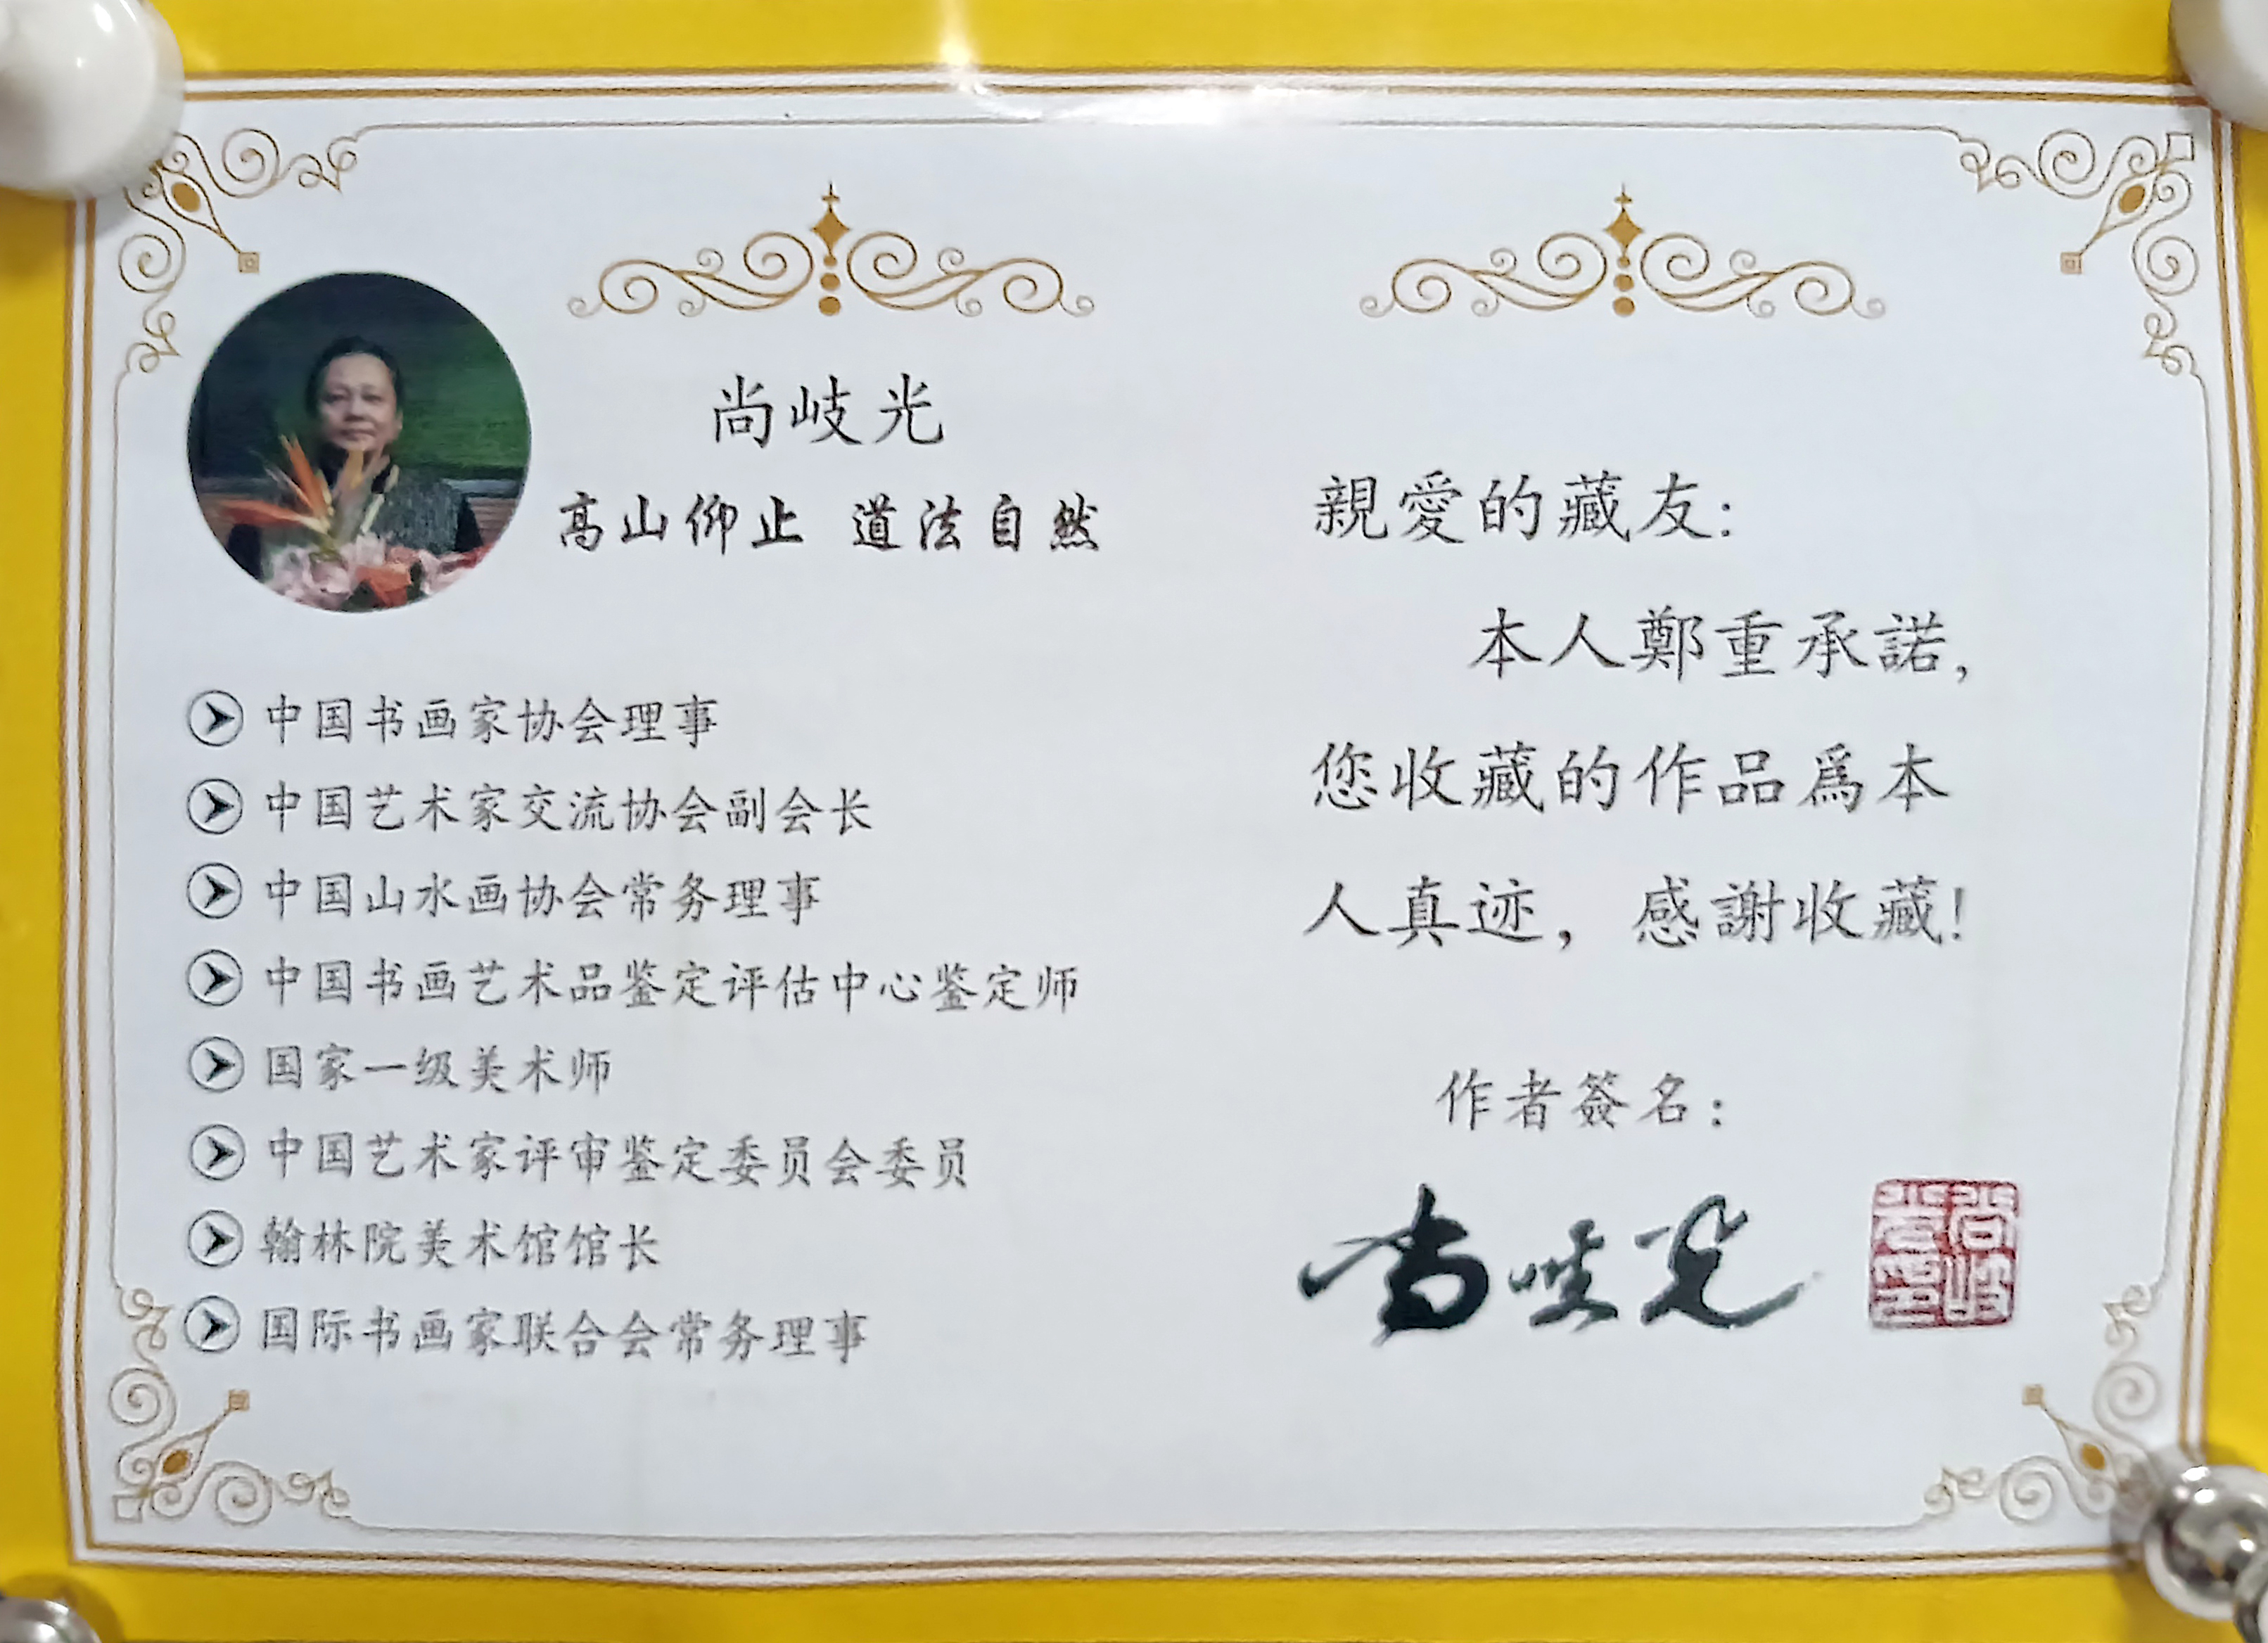 尚岐光
高山仰止 道法自然
中国书画家协会理事
中国艺术家交流协会副会长
中国山水画协会常务理事
中国书画艺术品鉴定评估中心鉴定师
国家一级美术师
中国艺术家评审鉴定委员会委员
翰林院美术馆馆长
国际书画家联合会常务理事
親愛的藏友:
本人鄭重承諾,
您收藏的作品爲本
人真迹，感謝收藏!
作者簽名：
尚岐光
尚岐光印